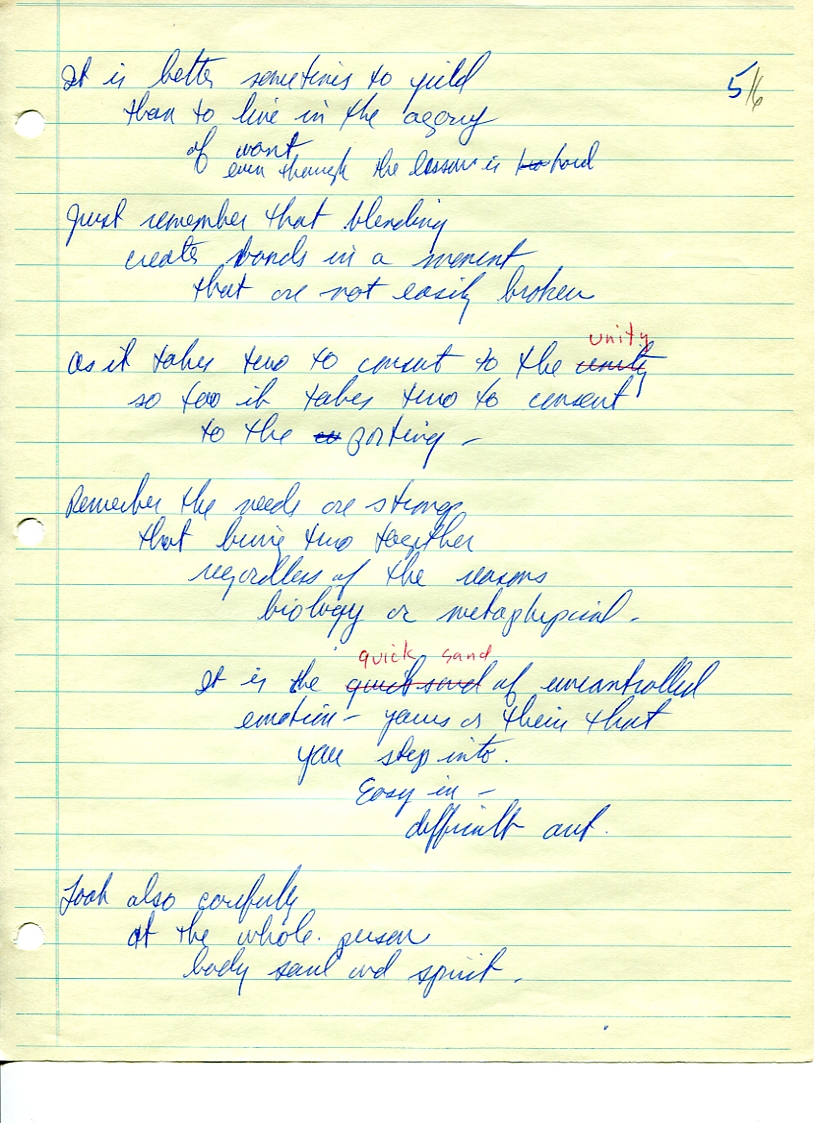 5/6
It is better sometimes to yield
than to live in the agony
of want
even though the lesson is hard
Just remember that blending
creates bonds in a moment
that are not easily broken
As it takes two to consent to the unity
unity
so too it takes two to consent
to the parting -
Remember the needs are strong
that bring two together
regardless of the reasons
biology or metaphysical.
quick sand
It is the quick sand of uncontrolled
emotion - yours or their that
you step into.
Easy in -
difficult out.
Look also carefully
at the whole person
body soul and spirit.